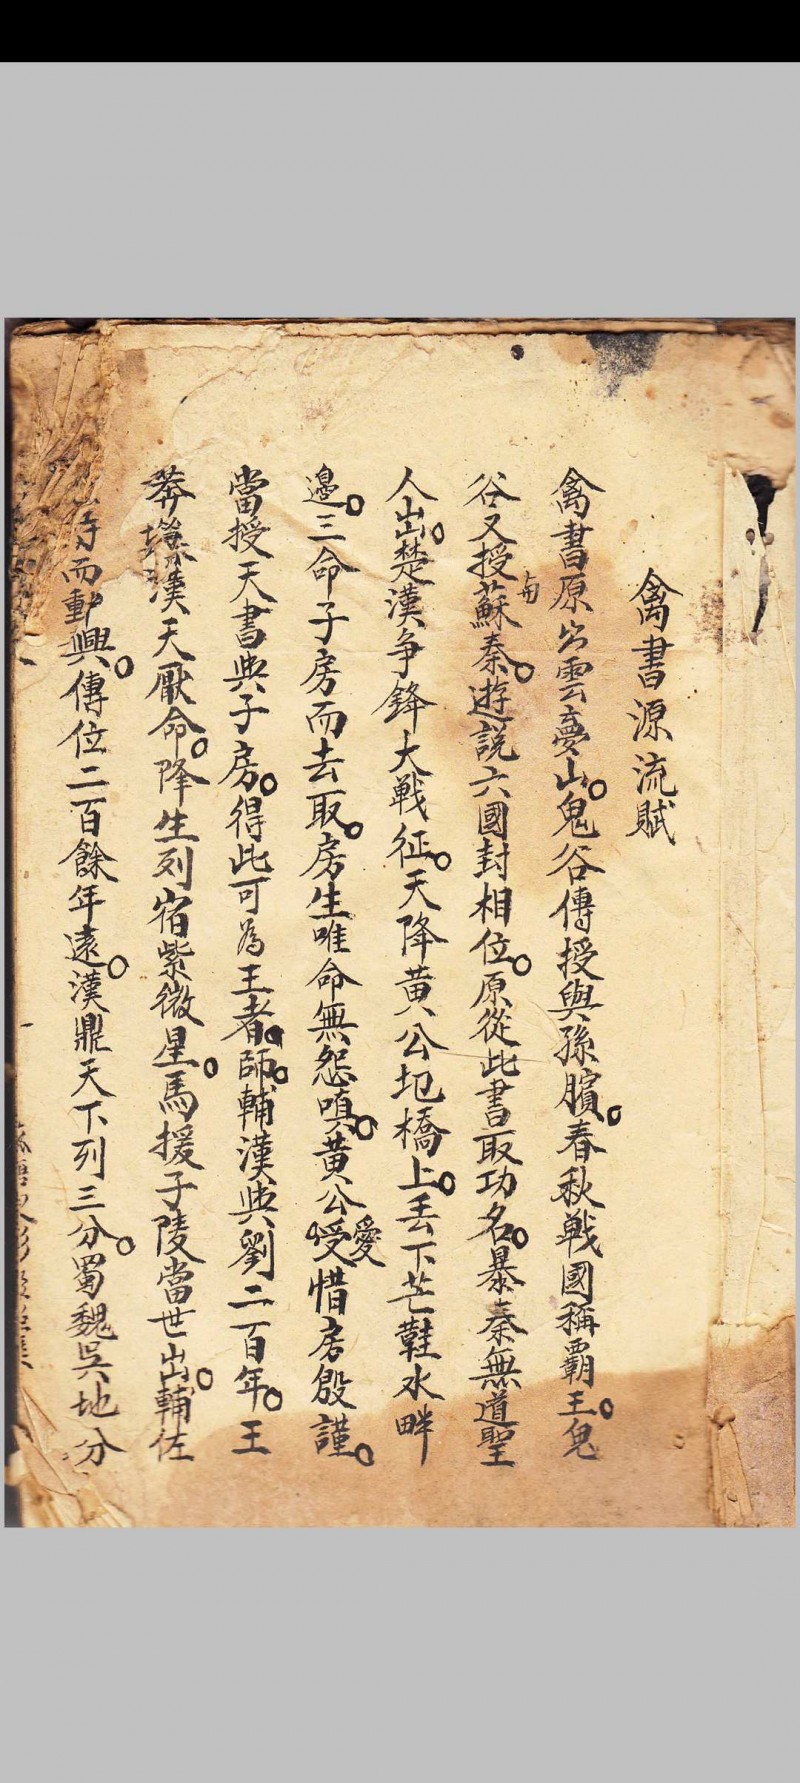 禽書源流賦
禽書原公雲夢山。鬼谷傳授與孫臏。春秋戰國稱霸王。鬼
谷又授蘇秦。遊說六國封相位。原從此書取功名。暴秦無道聖
人出。楚漢争鋒大戰征。天降黄公圯橋上。丢下芒鞋水畔
邊。三命子房而去取。房生唯命無怨嗔。黄公愛惜房殷謹。
當授天書與子房。得此可為王者師。輔漢興劉二百年。王
莽漢天厭命。降生列宿紫微星。馬援子陵當世出。輔佐
而興。傳位二百餘年遠。漢鼎天下列三分。蜀魏吳地分